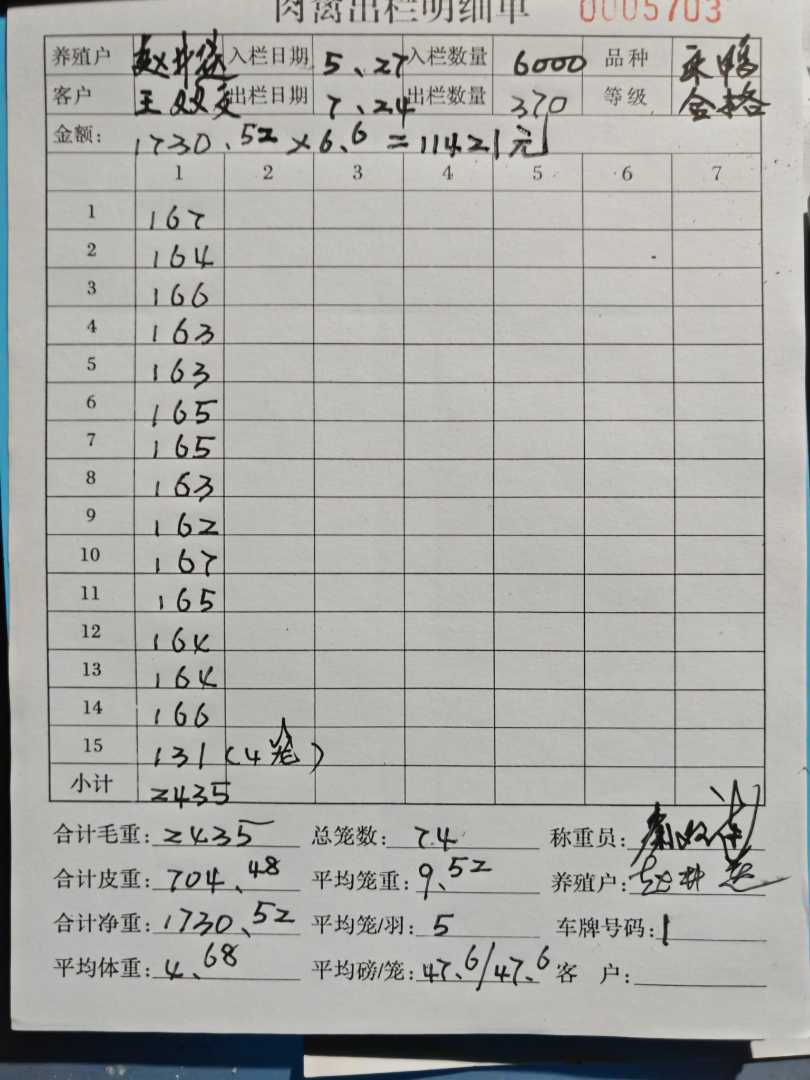 肉禽出栏明细单 0005703
养殖户 赵井超 入栏日期 5、27 入栏数量 6000 品种 禾鸭
客户 王双 出栏日期 7、24 出栏数量 370 等级 合格
金额: 1730.52×6.6=11421元
1 2 3 4 5 6 7
1 167
2 164
3 166
4 163
5 163
6 165
7 165
8 163
9 162
10 167
11 165
12 164
13 164
14 166
15 131(4笼)
小计 2435
合计毛重: 2435 总笼数: 74 称重员:
合计皮重: 704.48 平均笼重: 9.52 养殖户: 赵井超
合计净重: 1730.52 平均笼/羽: 5 车牌号码: 1
平均体重: 4.68 平均磅/笼: 47.6/47.6 客 户: